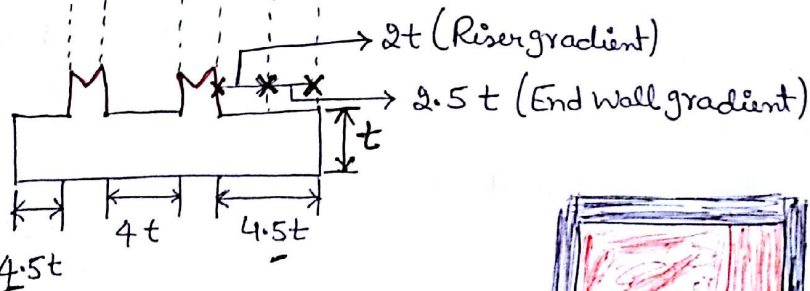 2t (Riser gradient)
2.5 t (End wall gradient)
t
4t
4.5t
4.5t